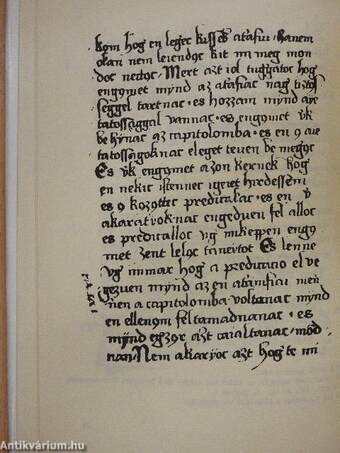 kom hog en legec kisseb atafiu · hanem
olan nem leiendoc kit mi meg mon
doc nedoc · Mert azt iol tuggatoc hog
engomet mynd az atafiac nag tiztos
seggel tartnac · es hozzam mynd aye
tatossaggal vannac · es engomet vk
be hynac az capitolomba · es en o aye
tatossagoknac eleget teuen be megoc
Es vk engomet azon kernek hog
en nekic istennec igeiet hirdessem
es o kozottoc predicalac · es en v
akaratyok nac engeduen fel alloc
es predicalloc vg mikeppen engo
met zent leloc taneytot Es lenne
vg immar hog a predicacio el ve
gezuen mynd az en atamfiai men
nen a capitolomba voltanac mynd
en ellenom fel tamadnanac · es
mynd egzor azt caialtanac · mod
nan Nem akaryoc azt hog te mi
Antikvárium.hu